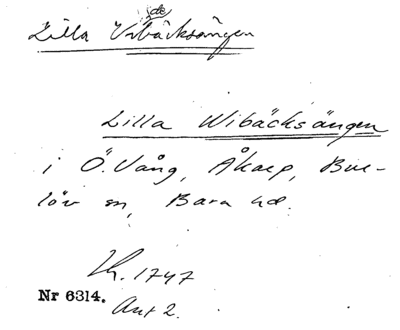 Lilla Vibäcksängen
de
Lilla Wibäcksängen
i Ö. Vång, Åkarp, Bur-
löv sn, Bara hd.
Lh. 1747
Nr 6314.
Akt 2.